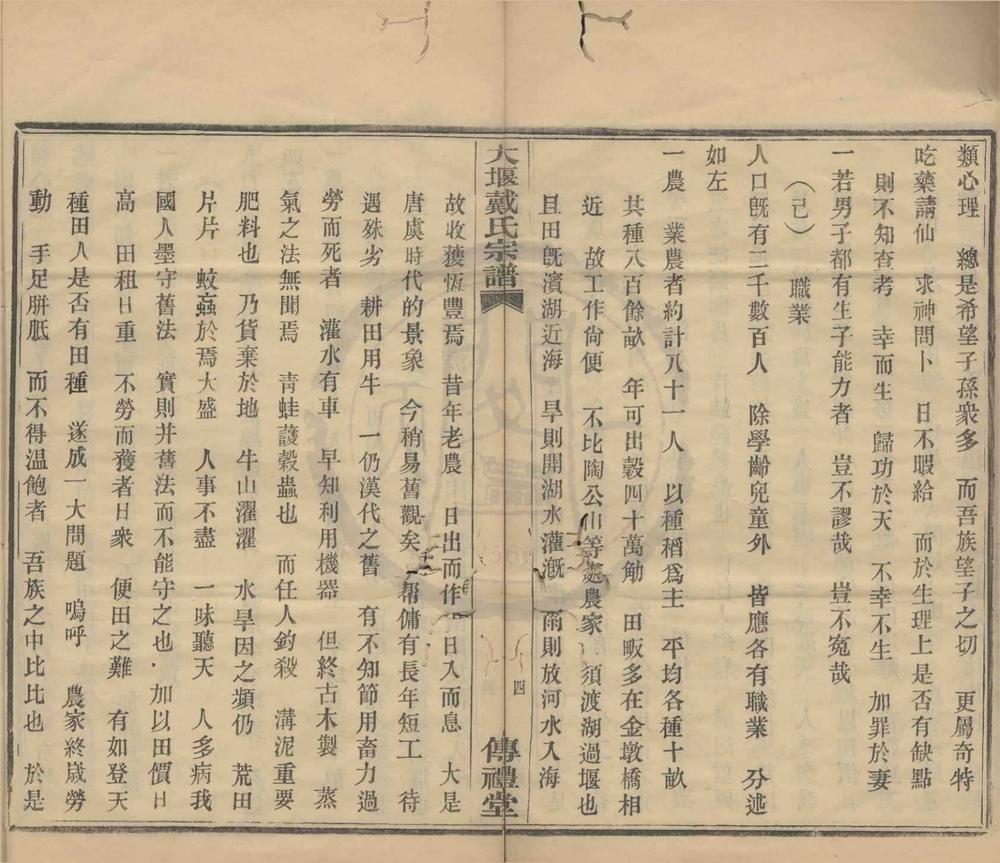 類心理　總是希望子孫衆多　而吾族望子之切　更屬奇特
吃藥請仙　求神問卜　日不暇給　而於生理上是否有缺點
則不知查考　幸而生　歸功於天　不幸不生　加罪於妻
一若男子都有生子能力者　豈不謬哉　豈不冤哉
（己）　職業
人口旣有二千數百人　除學齡兒童外　皆應各有職業　分述
如左
一農　業農者約計八十一人　以種稻爲主　平均各種十畝
共種八百餘畝　年可出穀四十萬觔　田畈多在金墩橋相
近　故工作尙便　不比陶公山等處農家　須渡湖過堰也
且田旣濱湖近海　旱則開湖水灌漑　雨則放河水入海
大堰戴氏宗譜
四
傳禮堂
故收獲恆豐焉　昔年老農　日出而作　日入而息　大是
唐虞時代的景象　今稍易舊觀矣　帮傭有長年短工　待
遇殊劣　耕田用牛　一仍漢代之舊　有不知節用畜力過
勞而死者　灌水有車　早知利用機器　但終古木製　蒸
氣之法無聞焉　青蛙護穀蟲也　而任人釣殺　溝泥重要
肥料也　乃貨棄於地　牛山濯濯　水旱因之頻仍　荒田
片片　蚊蟲於焉大盛　人事不盡　一味聽天　人多病我
國人墨守舊法　實則并舊法而不能守之也．加以田價日
高　田租日重　不勞而獲者日衆　便田之難　有如登天
種田人是否有田種　遂成一大問題　嗚呼　農家終歲勞
動　手足胼胝　而不得温飽者　吾族之中比比也　於是